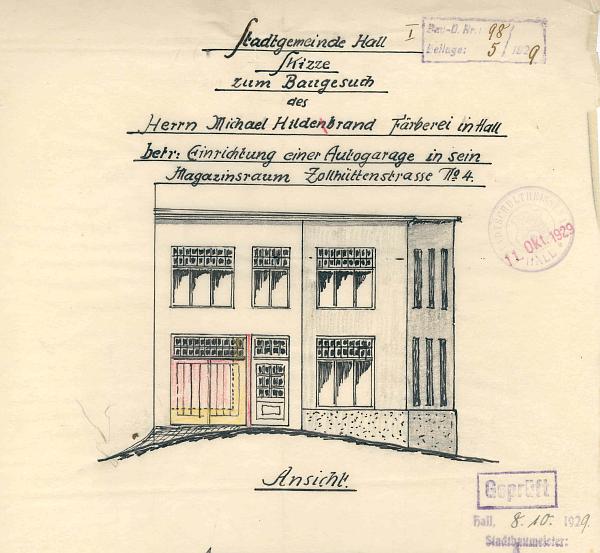 Stadtgemeinde Hall
I
Bau-D. Nr: 98
Beilage: 5 1929
Skizze
zum Baugesuch
des
Herrn Michael Hildenbrand Färberei in Hall
betr: Einrichtung einer Autogarage in sein
Magazinsraum Zollhüttenstrasse No 4.
11. Okt. 1929
HALL
Ansicht.
Geprüft
Hall, 8. 10. 1929.
Stadtbaumeister: